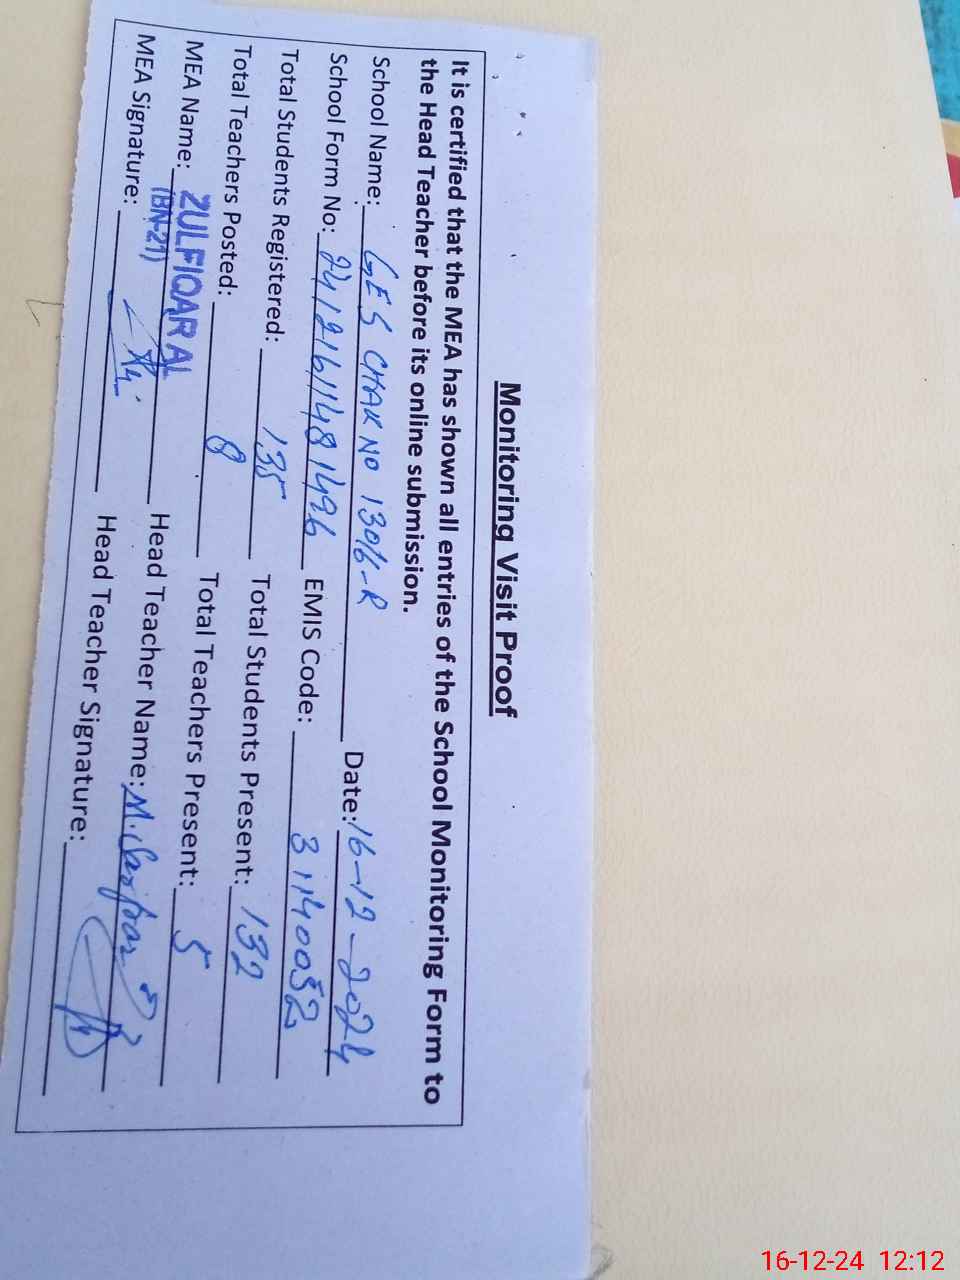 Monitoring Visit Proof
It is certified that the MEA has shown all entries of the School Monitoring Form to
the Head Teacher before its online submission.
School Name: GES CHAK NO 130/6-R Date: 16-12-2024
School Form No: 24121611481496 EMIS Code: 31140052
Total Students Registered: 135 Total Students Present: 132
Total Teachers Posted: 8 Total Teachers Present: 5
MEA Name: ZULFIQAR ALI Head Teacher Name: M.
(BN-21)
MEA Signature: Head Teacher Signature:
16-12-24 12:12